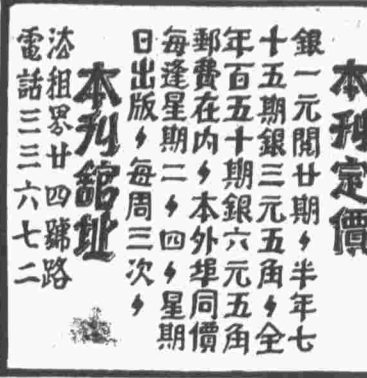 本刋定價
銀一元閱廿期，半年七
十五期銀三元五角，全
年百五十期銀六元五角
郵費在内，本外埠同價
每逢星期二，四，星期
日出版，每周三次，
本刋舘址
法租界廿四號路
電話三三六七二